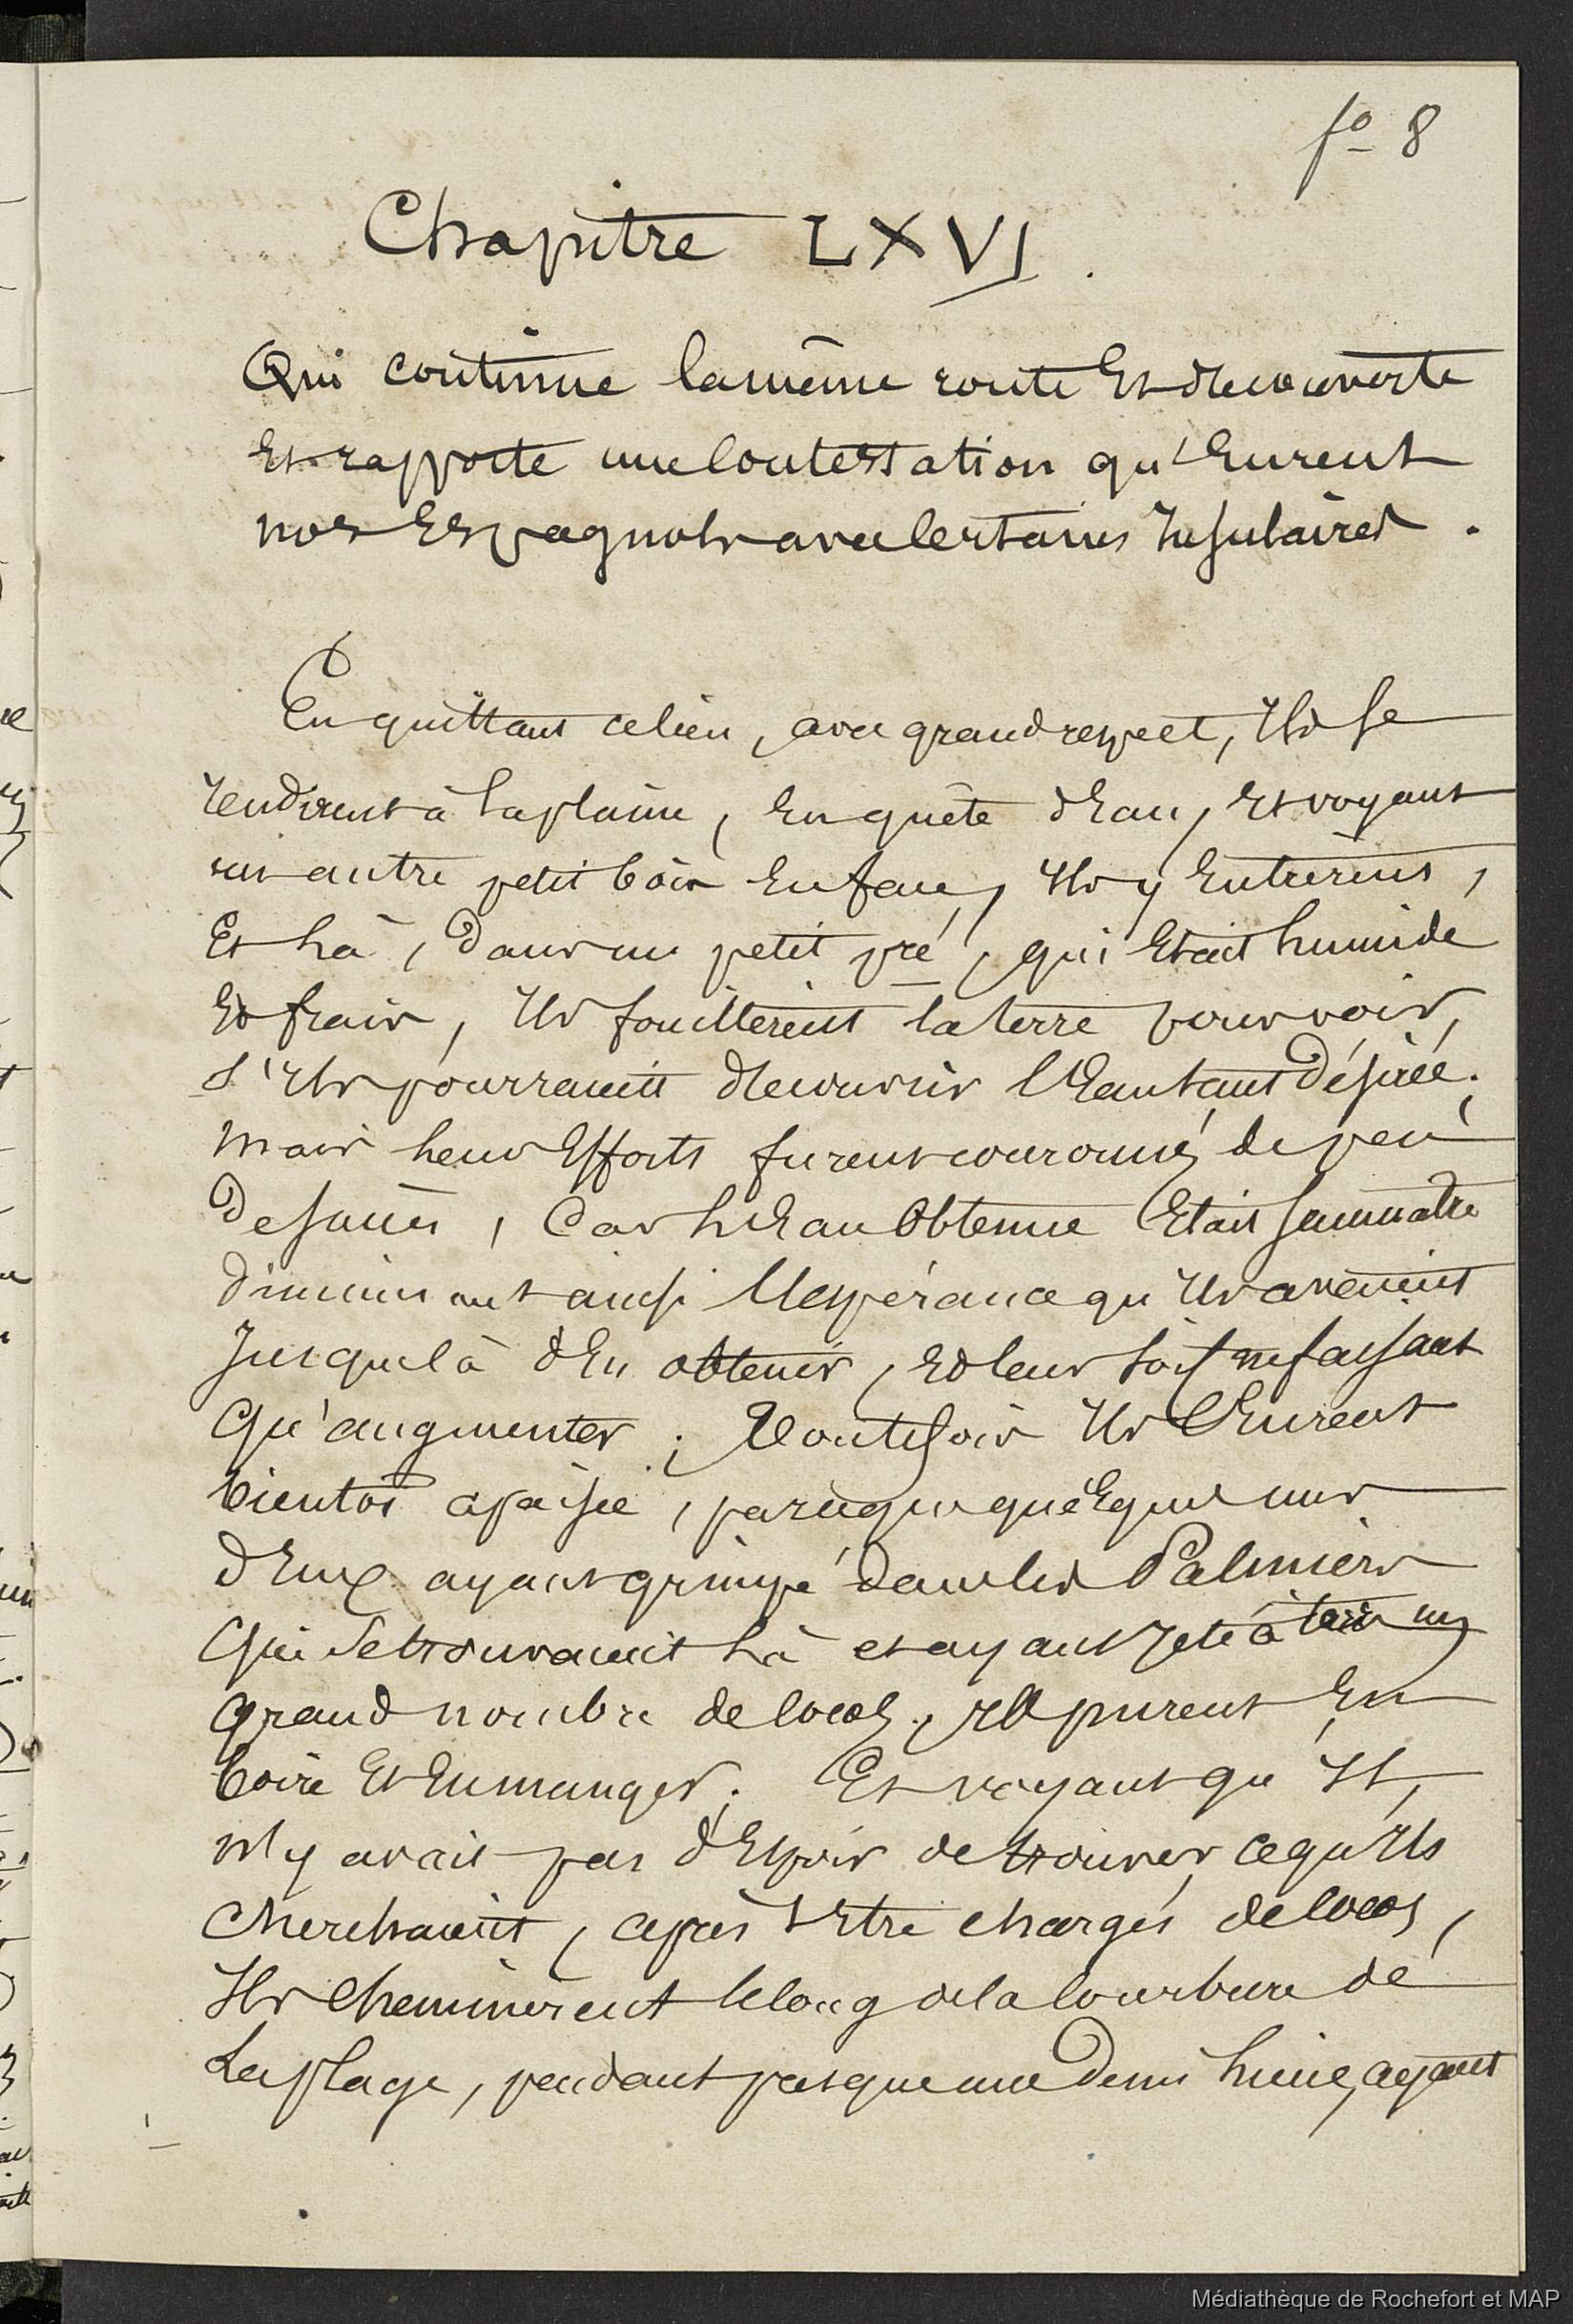 fo 8
Chapitre LXVI.
Qui continue la même route Et découverte
Et rapporte une Contestation qu'Eurent
nos Espagnols avec Certains Insulaires.
En quittant ce lieu, avec grand respect, Ils Se
rendirent à la plaine, En quête d'Eau, Et voyant
un autre petit bois En face, Ils y Entrèrent,
Et là, dans un petit pré, qui Etait humide
Et frais, Ils fouillèrent la terre pour voir,
s'Ils pourraient découvrir l'Eau tant désirée;
mais leurs Efforts furent couronnés de peu
de succès, Car l'Eau Obtenue Etait saumatre
diminuant ainsi l'Espérance qu'Ils avaient
Jusque là d'En obtenir, Et leur soif ne faisant
qu'augmenter; Toutefois Ils l'Eurent
bientôt apaisée, parceque quelques uns
d'Eux ayant grimpé dans les Palmiers
qui se trouvaient là et ayant Jeté à terre un
grand nombre de Cocos, Ils purent En
boire Et En manger. Et voyant qu'Il,
n'y avait pas d'Espoir de trouver, ce qu'Ils
cherchaient, après s'Etre chargés de Cocos,
Ils Cheminèrent le long de la Courbure de
La plage, pendant presque une demi heure, ayant
Médiathèque de Rochefort et MAP